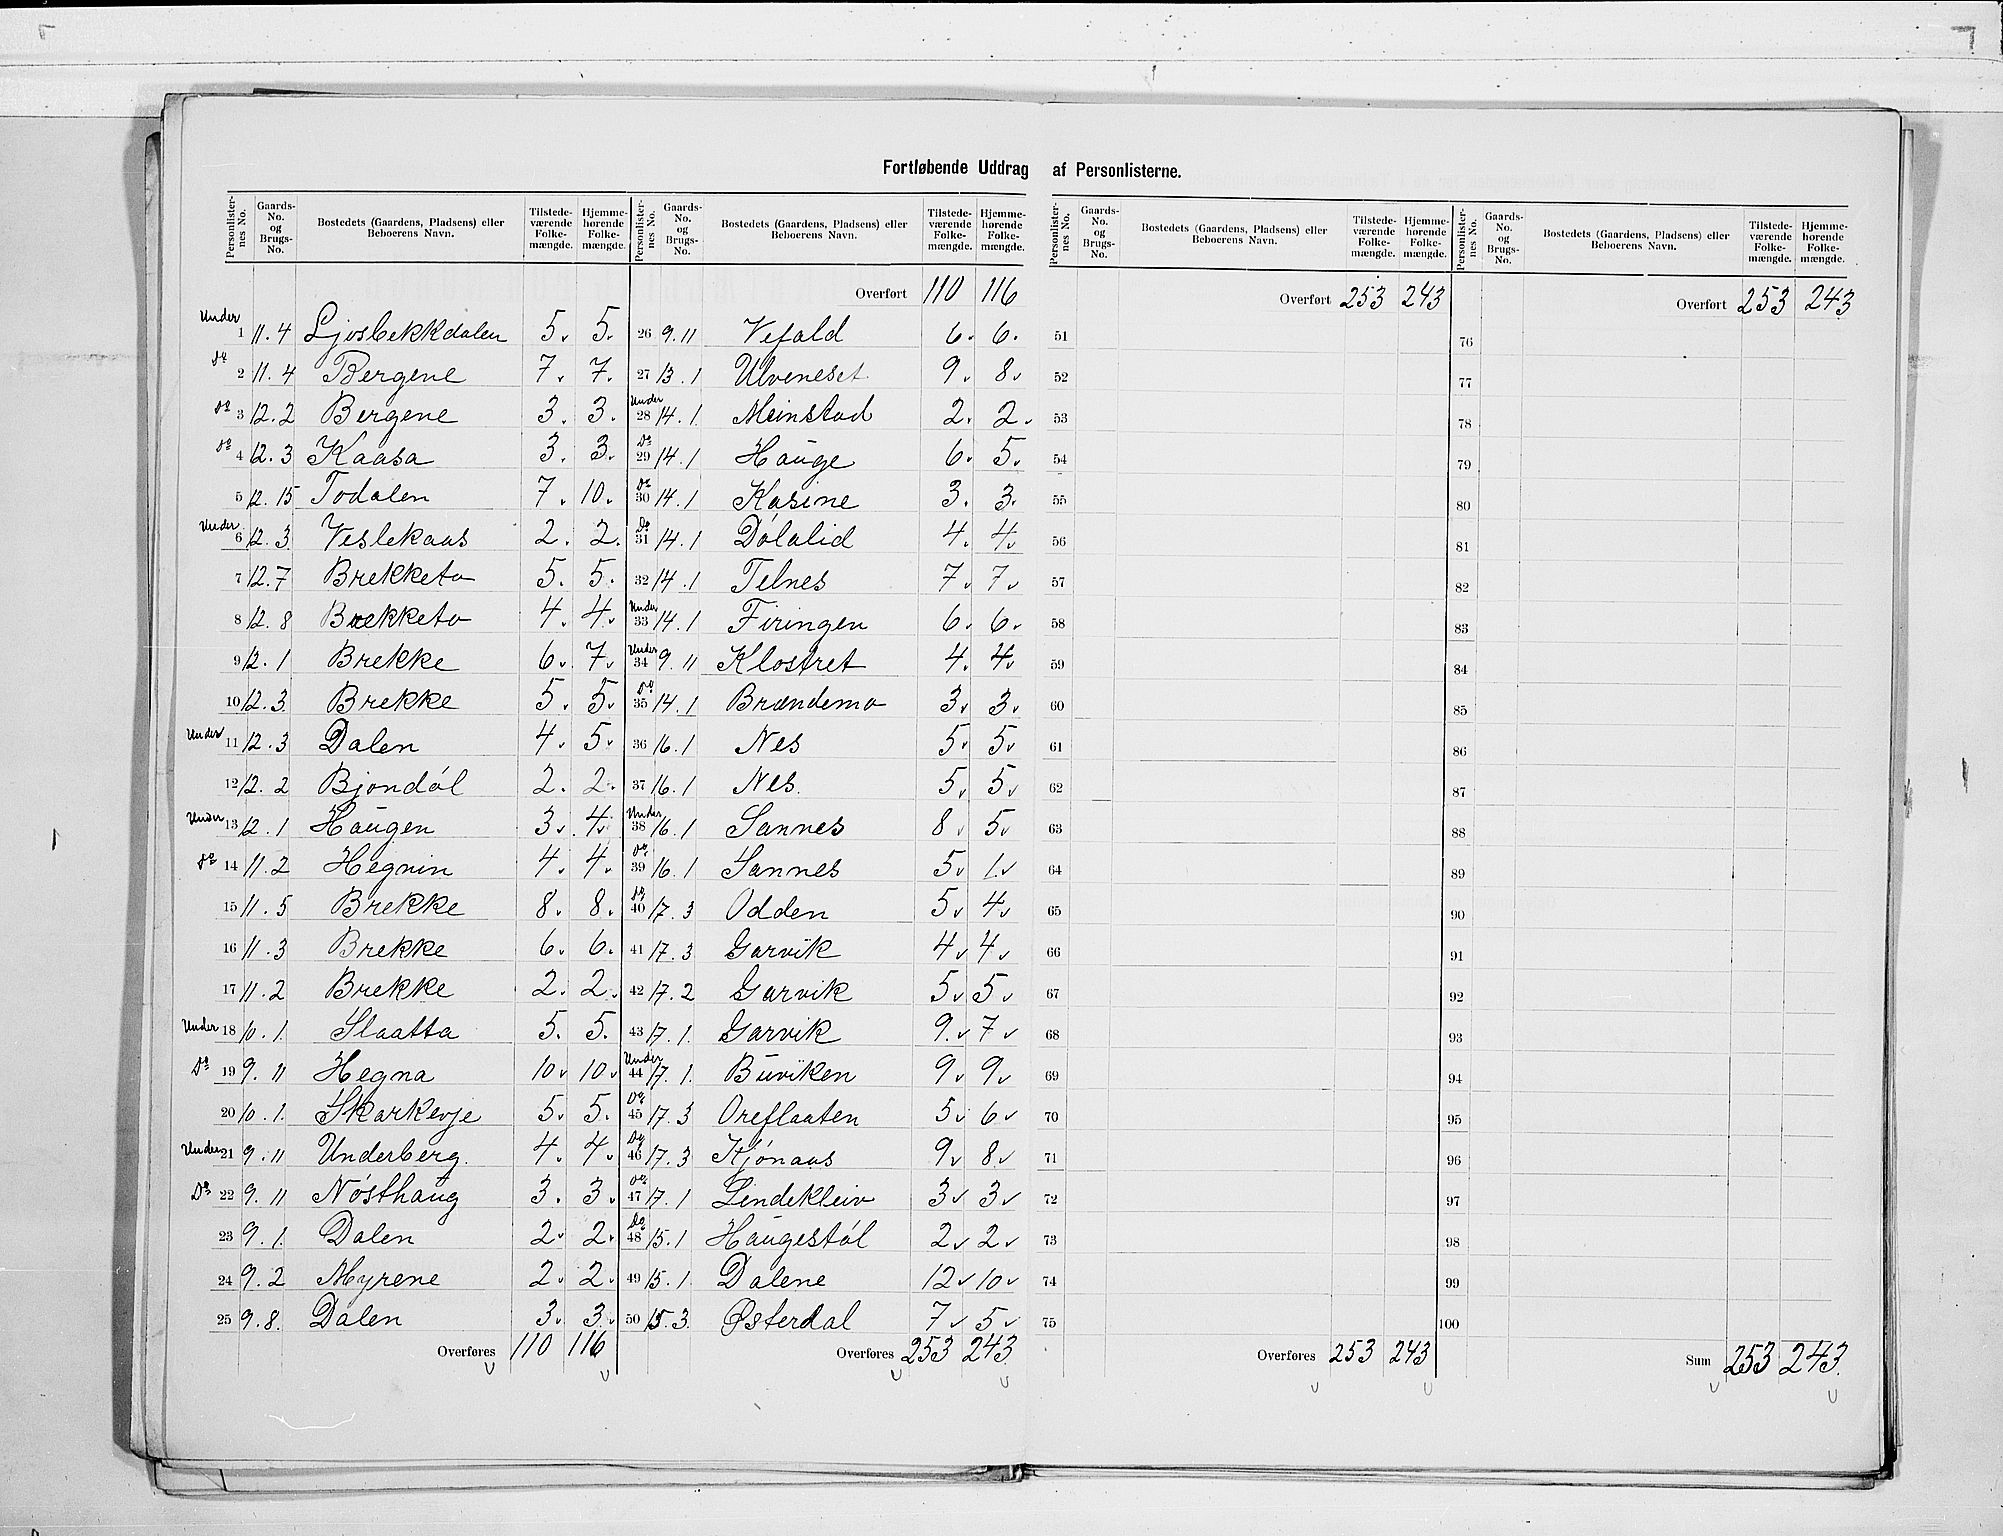 Fortløbende Uddrag af Personlisterne.
Personlister-nes No. Gaards-No. og Brugs-No. Bostedets (Gaardens, Pladsens) eller Beboerens Navn. Tilstede-værende Folke-mængde. Hjemme-hørende Folke-mængde.
Under 1 11.4 Ljosbekkdalen 5 5
Do 2 11.4 Bergene 7 7
Do 3 12.2 Bergene 3 3
Do 4 12.3 Kaasa 3 3
5 12.15 Todalen 7 10
Under 6 12.3 Veslekaas 2 2
7 12.7 Brekketo 5 5
8 12.8 Brekketo 4 4
9 12.1 Brekke 6 7
10 12.3 Brekke 5 5
Under 11 12.3 Dalen 4 5
12 12.2 Bjondøl 2 2
Under 13 12.1 Haugen 3 4
Do 14 11.2 Hegnin 4 4
15 11.5 Brekke 8 8
16 11.3 Brekke 6 6
17 11.2 Brekke 2 2
Under 18 10.1 Slaatta 5 5
Do 19 9.11 Hegna 10 10
20 10.1 Skarkevje 5 5
Under 21 9.11 Underberg. 4 4
Do 22 9.11 Nøsthaug 3 3
23 9.1 Dalen 2 2
24 9.2 Myrene 2 2
25 9.8 Dalen 3 3
Overføres 110 116
Personlister-nes No. Gaards-No. og Brugs-No. Bostedets (Gaardens, Pladsens) eller Beboerens Navn. Tilstede-værende Folke-mængde. Hjemme-hørende Folke-mængde.
Overført 110 116
26 9.11 Vefald 6 6
27 13.1 Ulveneset 9 8
Under 28 14.1 Meinstad 2 2
Do 29 14.1 Hauge 6 5
Do 30 14.1 Kasine 3 3
Do 31 14.1 Dølalid 4 4
32 14.1 Telnes 7 7
Under 33 14.1 Firingen 6 6
Under 34 9.11 Klostret 4 4
Do 35 14.1 Brændemo 3 3
36 16.1 Nes 5 5
37 16.1 Nes. 5 5
Under 38 16.1 Sannes 8 5
Do 39 16.1 Sannes 5 1
Do 40 17.3 Odden 5 4
41 17.3 Garvik 4 4
42 17.2 Garvik 5 5
43 17.1 Garvik 9 7
Under 44 17.1 Buviken 9 9
Do 45 17.3 Oreflaaten 5 6
Do 46 17.3 Kjønaas 9 8
Do 47 17.1 Lindekleiv 3 3
Do 48 15.1 Haugestøl 2 2
49 15.1 Dalene 12 10
50 15.3 Østerdal 7 5
Overføres 253 243
Personlister-nes No. Gaards-No. og Brugs-No. Bostedets (Gaardens, Pladsens) eller Beboerens Navn. Tilstede-værende Folke-mængde. Hjemme-hørende Folke-mængde.
Overført 253 243
51
52
53
54
55
56
57
58
59
60
61
62
63
64
65
66
67
68
69
70
71
72
73
74
75
Overføres 253 243
Personlister-nes No. Gaards-No. og Brugs-No. Bostedets (Gaardens, Pladsens) eller Beboerens Navn. Tilstede-værende Folke-mængde. Hjemme-hørende Folke-mængde.
Overført 253 243
76
77
78
79
80
81
82
83
84
85
86
87
88
89
90
91
92
93
94
95
96
97
98
99
100
Sum 253 243